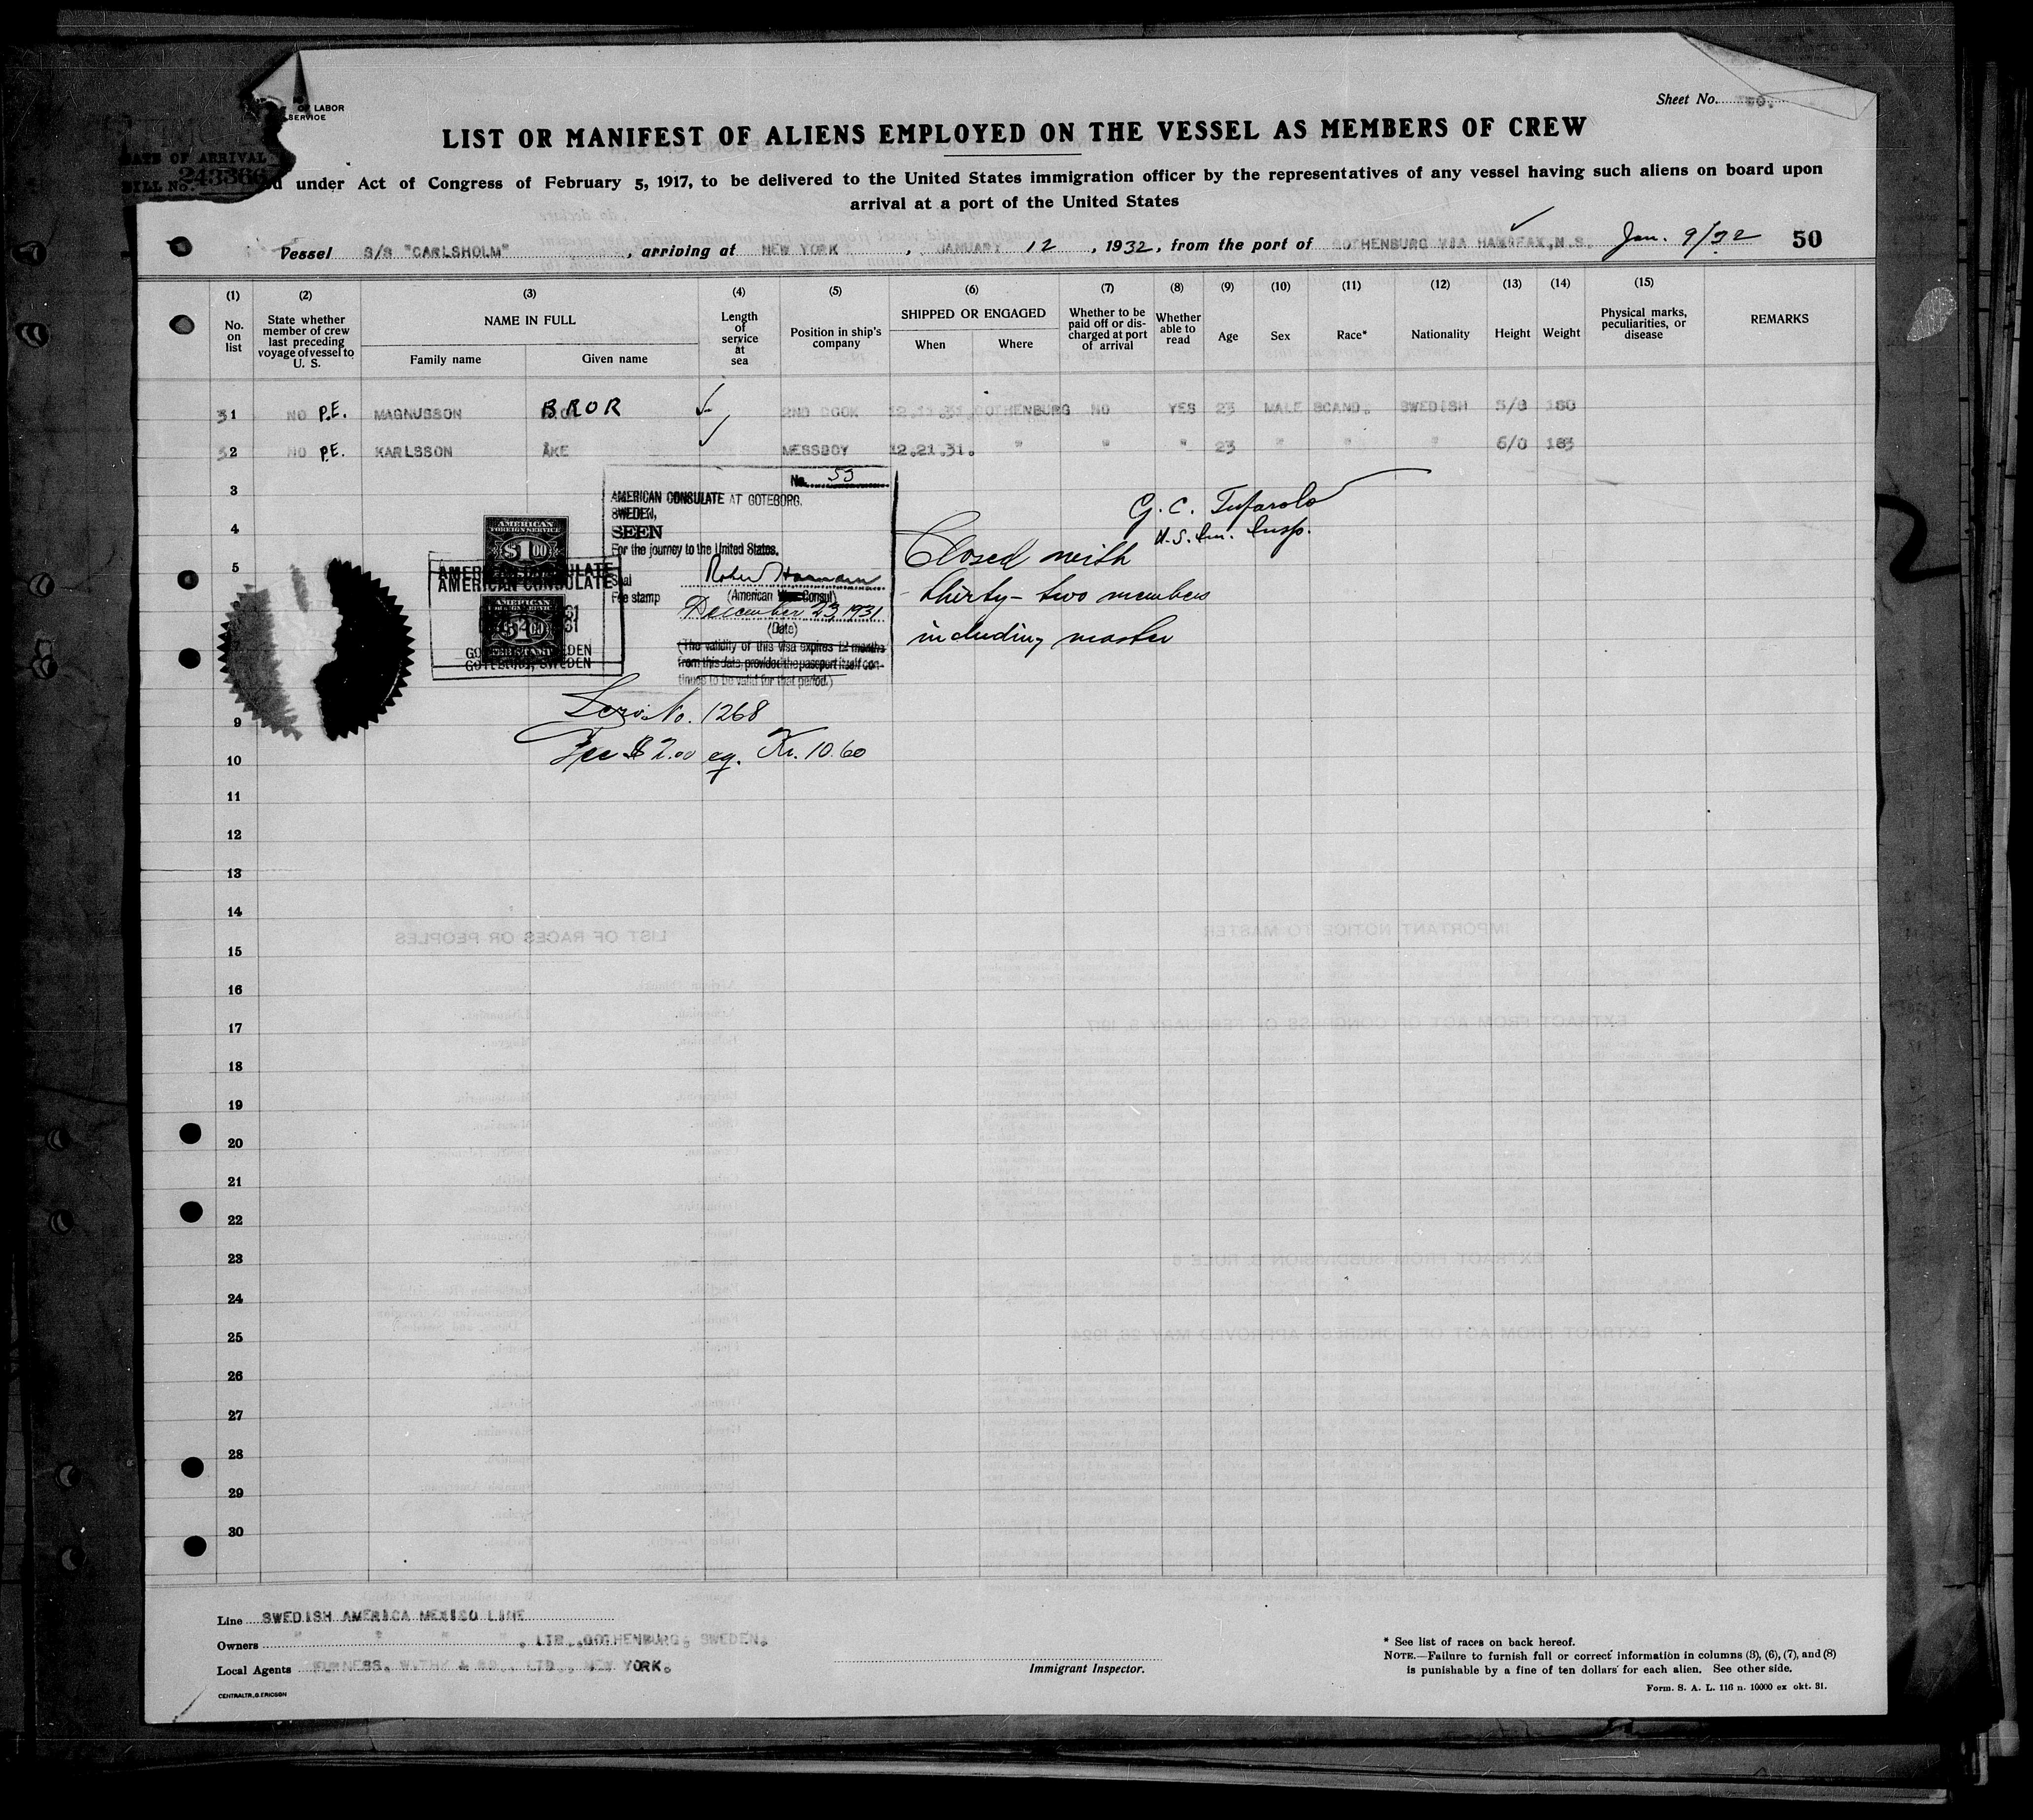 OF LABOR
SERVICE
Sheet No.
LIST OR MANIFEST OF ALIENS EMPLOYED ON THE VESSEL AS MEMBERS OF CREW
DATE OF ARRIVAL
BILL No. 243366
under Act of Congress of February 5, 1917, to be delivered to the United States immigration officer by the representatives of any vessel having such aliens on board upon
arrival at a port of the United States
Vessel S/S "CARLSHOLM", arriving at NEW YORK, JANUARY 12, 1932, from the port of GOTHENBURG VIA HALIFAX, N.S. Jan. 9/32 50
(1) (2) (3) (4) (5) (6) (7) (8) (9) (10) (11) (12) (13) (14) (15)
No. on list
State whether member of crew last preceding voyage of vessel to U. S.
NAME IN FULL
Family name Given name
Length of service at sea
Position in ship's company
SHIPPED OR ENGAGED
When Where
Whether to be paid off or discharged at port of arrival
Whether able to read
Age Sex Race* Nationality Height Weight
Physical marks, peculiarities, or disease
REMARKS
31 NO P.E. MAGNUSSON BROR 2ND COOK GOTHENBURG NO YES 23 MALE SCAND. SWEDISH 5/8 160
32 NO P.E. KARLSSON ÅKE MESSBOY 12.21.31. " " " 23 " " " 6/0 163
3
4
5
9
10
11
12
13
14
15
16
17
18
19
20
21
22
23
24
25
26
27
28
29
30
No. 53
AMERICAN CONSULATE AT GOTEBORG,
SWEDEN,
SEEN
For the journey to the United States.
Seal
Fee stamp
(American Vice Consul)
December 23, 1931
(Date)
(The validity of this visa expires 12 months
from this date, provided the passport itself con-
tinues to be valid for that period.)
AMERICAN
FOREIGN SERVICE
$1.00
AMERICAN CONSULATE
AMERICAN CONSULATE
GOTEBORG, SWEDEN
Serv. No. 1268
Fee $2.00 eq. Kr. 10.60
G. C. Tufarolo
U.S. Im. Insp.
Closed with
thirty-two members
including master
Line SWEDISH AMERICA MEXICO LINE
Owners " " " ", LTD., GOTHENBURG, SWEDEN.
Local Agents FURNESS, WITHY & CO., LTD., NEW YORK.
Immigrant Inspector.
CENTRALTR., G. ERICSON
* See list of races on back hereof.
NOTE.—Failure to furnish full or correct information in columns (3), (6), (7), and (8)
is punishable by a fine of ten dollars for each alien. See other side.
Form. S. A. L. 116 n. 10000 ex okt. 31.